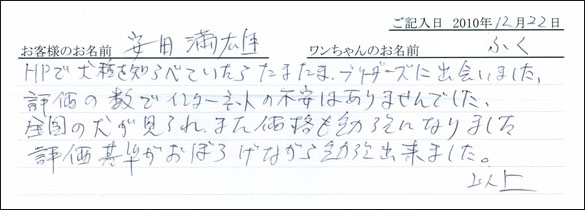 ご記入日 2010年12月22日
お客様のお名前 安田 満雄 ワンちゃんのお名前 ふく
HPで犬種を知らべていたらたまたまブリーダーズに出会いました、
評価の数でインターネットの不安はありませんでした、
全国の犬が見られ、また価格も勉強になりました
評価基準がおぼろげながら勉強出来ました。
以上